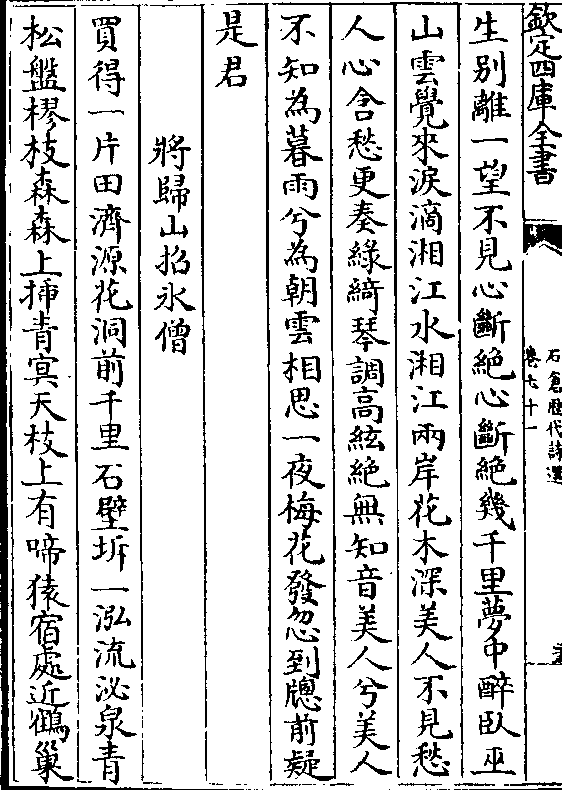 欽定四庫全書
石倉歷代詩選
卷六十一
生别離一望不見心斷絶心斷絶幾千里夢中醉臥巫
山雲覺來淚滴湘江水湘江兩岸花木深美人不見愁
人心含愁更奏綠綺琴調高絃絶無知音美人兮美人
不知為暮雨兮為朝雲相思一夜梅花發忽到牕前疑
是君
將歸山招氷僧
買得一片田濟源花洞前千里石壁坼一泓流泌泉青
松盤樛枝森森上揷青冥天枝上有啼猿宿處近鶴巢